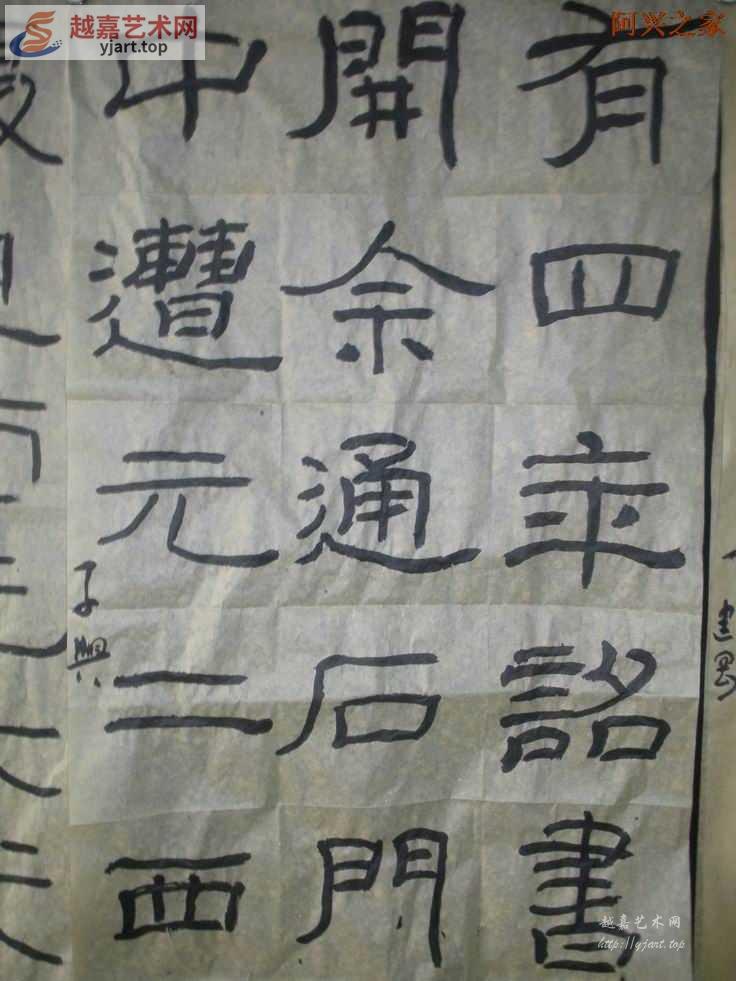 越嘉艺术网
yjart.top
阿兴之家
有四年詔書
開余通石門
中遭元二西
子興
越嘉艺术网
http://yjart.top